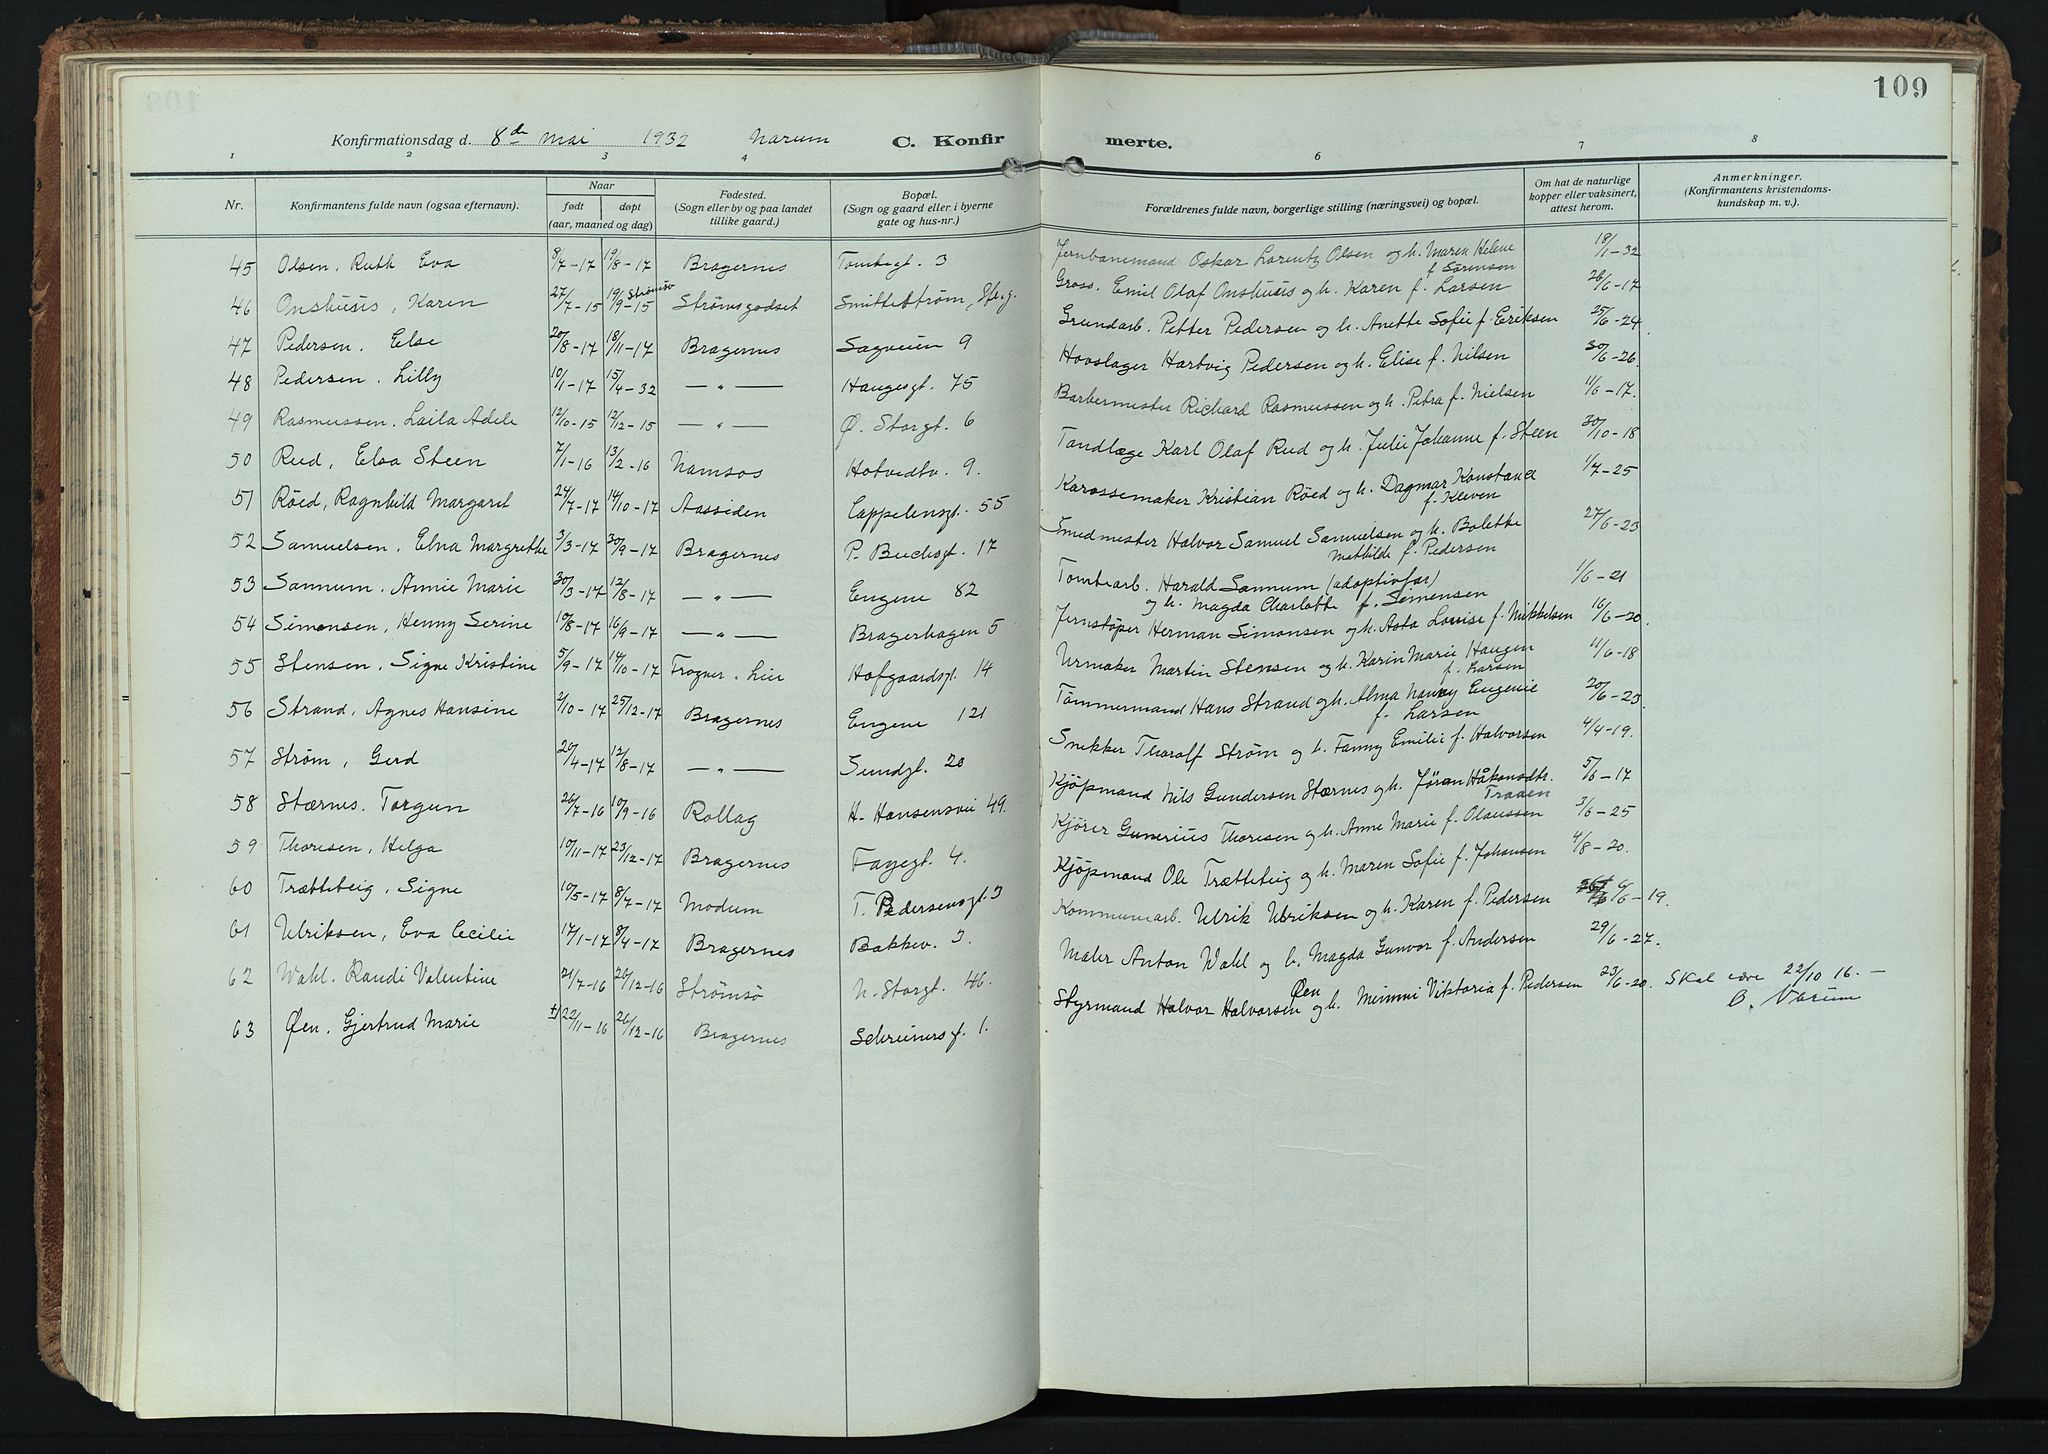 109
Konfirmationsdag d. 8de mai 1932 Narum C. Konfirmerte.
1 2 3 4 6 7 8
Nr. Konfirmantens fulde navn (ogsaa efternavn). Naar født døpt (aar, maaned og dag) Fødested. (Sogn eller by og paa landet tillike gaard.) Bopæl. (Sogn og gaard eller i byerne gate og hus-nr.) Forældrenes fulde navn, borgerlige stilling (næringsvei) og bopæl. Om hat de naturlige kopper eller vaksinert, attest herom. Anmerkninger. (Konfirmantens kristendoms-kundskap m. v.).
45 Olsen, Ruth Eva 8/7-17 19/8-17 Bragernes Tomtegt. 3 Jernbanemand Oskar Lorentz Olsen og h. Maren Helene f. Sørensen 18/1-32
46 Onshuus, Karen 27/7-15 19/9-15 Strømsø Strømsgodset Smittestrøm, Gross. Emil Olaf Onshuus og h. Karen f. Larsen 26/6-17
47 Pedersen, Else 20/8-17 18/11-17 Bragernes Sagveien 9 Grundarb. Petter Pedersen og h. Anette Sofie f. Eriksen 25/6-24
48 Pedersen, Lilly 10/1-17 15/4-32 -"- Haugesgt. 75 Hovslager Hartvig Pedersen og h. Elise f. Nilsen 30/6-26
49 Rasmussen, Laila Adele 12/10-15 12/12-15 -"- Ø. Storgt. 6 Barbermester Richard Rasmussen og h. Petra f. Nielsen 11/6-17.
50 Rud, Elsa Steen 7/1-16 13/2-16 Namsos Hotvedtv. 9. Tandlæge Karl Olaf Rud og h. Julie Johanne f. Steen 30/10-18
51 Röed, Ragnhild Margaret 24/7-17 14/10-17 Aassiden Cappelensgt. 55 Karossemaker Kristian Röed og h. Dagmar Konstance f. Kleven 1/7-25
52 Samuelsen, Elna Margrethe 3/3-17 30/9-17 Bragernes P. Buchsgt. 17 Smedmester Halvor Samuel Samuelsen og h. Bolette Mathilde f. Pedersen 27/6-23
53 Sannum, Annie Marie 30/3-17 12/8-17 -"- Engene 82 Tomtearb. Harald Sannum (adoptivfar) og h. Magda Charlotte f. Simensen 1/6-21
54 Simonsen, Henny Serine 10/8-17 16/9-17 -"- Bragerhagen 5 Jernstøper Herman Simonsen og h. Asta Louise f. Mikkelsen 16/6-20.
55 Stensen, Signe Kristine 5/9-17 14/10-17 Frogner, Lier Hofgaardsgt. 14 Urmaker Martin Stensen og h. Karin Marie Haugen f. Larsen 11/6-18
56 Strand, Agnes Hansine 2/10-17 25/12-17 Bragernes Engene 121 Tömmermand Hans Strand og h. Alma Nanny Eugenie f. Larsen 20/6-23
57 Strøm, Gerd 20/4-17 12/8-17 -"- Sundgt. 20 Snekker Thoralf Strøm og h. Fanny Emilie f. Halvorsen 4/4-19.
58 Stærnes, Torgun 26/7-16 10/9-16 Rollag H. Hansensvei 49. Kjöpmand Nils Gundersen Stærnes og h. Jøran Håkonsdtr. Traaen 5/6-17
59 Thoresen, Helga 10/11-17 23/12-17 Bragernes Fayegt. 4. Kjörer Gunerius Thoresen og h. Anne Marie f. Olaussen 3/6-25
60 Trætteteig, Signe 10/5-17 8/7-17 Modum T. Pedersensgt. 3 Kjöpmand Ole Trætteteig og h. Maren Sofie f. Johansen 4/8-20.
61 Ulriksen, Eva Cecilie 17/1-17 8/4-17 Bragernes Bakkev. 3. Kommunearb. Ulrik Ulriksen og h. Karen f. Pedersen 6/6-19.
62 Wahl, Randi Valentine 21/7-16 26/12-16 Strømsø N. Storgt. 46. Maler Anton Wahl og h. Magda Gunvor f. Andersen 29/6-27.
63 Øen, Gjertrud Marie +) 22/11-16 26/12-16 Bragernes Schreinersg. 1. Styrmand Halvor Halvorsen Øen og h. Mimmi Viktoria f. Pedersen 23/6-20. Skal være 22/10 16. -